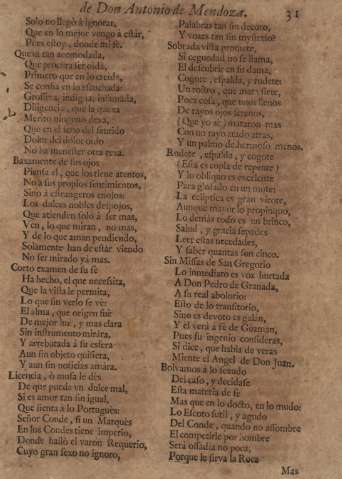 de Don Antonio de Mendoza. 31
Solo no llegò à ignorar,
Que en lo mejor vengo à estàr,
Pues estoy, donde mi fè.
Quexa tan acomodada,
Que procura ser oìda,
Primero que en lo creìda,
Se consia en lo escuchada:
Grossera, indigna,
Diligencia, que la quexa
Merito ninguno dexa,
Que en el seno del sentido
Dolor del
No ha menester otra rexa.
Baxamente de sus ojos
Piensa el, que los tiene atentos,
No à sus propios sentimientos,
Sino à estrangeros enojos:
Los dulces nobles despojos,
Que atienden solo à ser mas,
Ven, lo que miran, no mas,
Y de lo que aman pendiendo,
Solamente han de estàr viendo
No ser mirado yà mas.
Corto examen de su fè
Ha hecho, el que necessita,
Que la vista le permita,
Lo que sin verlo se vè:
El alma, que origen fuè
De mejor luz, y mas clara
Sin instrumento miràra,
Y arrebatada à su esfera
Aun sin objeto quisiera,
Y aun sin noticias amàra.
Licencia, ò musa le dès
De que pueda un dulce mal,
Si es amor tan sin igual,
Que sienta à lo Portuguès:
Señor Conde, si un Marquès
En los Condes tiene Imperio,
Donde hallò el varon Requerio,
Cuyo gran sexo no ignoro,
Palabras tan sin decoro,
Y voces tan sin mysterio?
Sobrada vista promete,
Si ceguedad no se llama,
El descubrir en su dama,
Cogote, espalda, y rodete:
Un rostro, que
Poca cosa, que unos
De rayos ojos serenos,
(Que yo sè) mataron mas
Con un rayo atado atràs,
Y un palmo de hermoso menos.
Rodete, espalda, y cogote
(Esta es copla de repente)
Y lo obliquo es excelente
Para glosado en un mote:
La ecliptica es gran virote,
Aunque mayor lo propinquo,
Lo demàs todo es un brinco,
Salud, y gracia sepades
Leer estas necedades,
Y saber quantas son cinco.
Sin Missas de San Gregorio
Lo inmediato es voz hurtada
A Don Pedro de Granada,
A su real abolorio:
Esto de lo transitorio,
Sino es devoto es galàn,
Y el verà à fè de Guzmàn,
Pues su ingenio consideras,
Si dice, que habla de veras
Miente el Angel de Don Juan.
Bolvamos à lo segundo
Del caso, y decidase
Esta materia de fè
Mas que en lo docto, en lo mudo:
Lo Escoto sutil, y agudo
Del Conde, quando no assombre
El competirle por hombre
Serà ossadìa no poca,
Porque le sirva la Roca
Mas